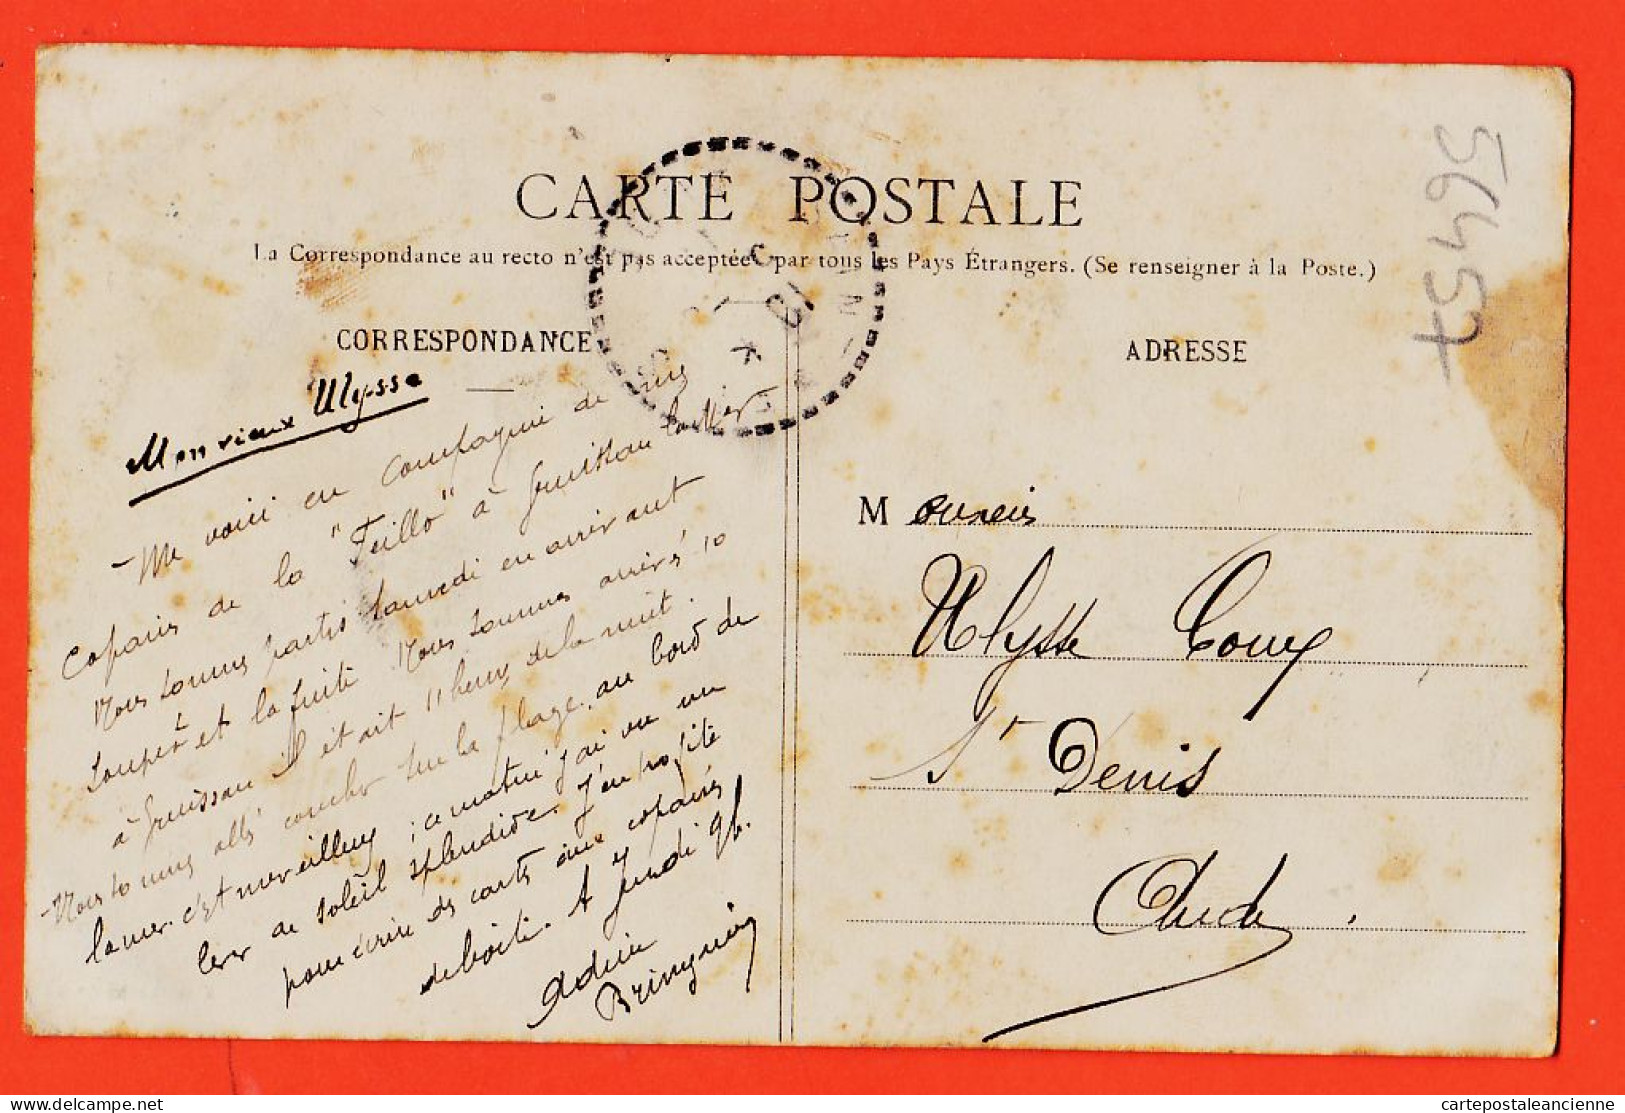 CARTE POSTALE
La Correspondance au recto n'est pas acceptée par tous les Pays Étrangers. (Se renseigner à la Poste.)
CORRESPONDANCE
ADRESSE
56457
Mon vieux Ulysse
- Me voici en compagnie de
copains de la "Feillo" à Gruissan la Mer
Nous sommes partis samedi en arrivant
souper et la suite Nous sommes arrivés
à Gruissan il était 11 heures de la nuit.
- Nous sommes allés coucher sur la plage, au bord de
la mer. c'est merveilleux, ce matin j'ai vu un
lever de soleil splendide. J'en profite
pour écrire des cartes aux copains
de boite. A Jeudi
Adrien
Bringuier
M onsieur
Ulysse Couy
St Denis
Aude.
delcampe.net
cartepostaleancienne